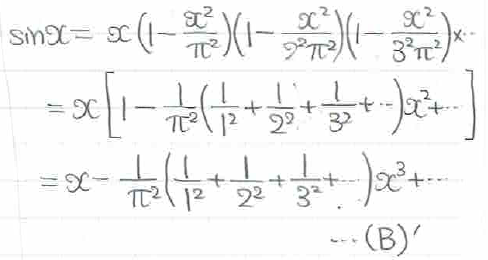 sinx = x(1 - x²/π²)(1 - x²/2²π²)(1 - x²/3²π²)×...
= x[1 - 1/π²(1/1² + 1/2² + 1/3² + ...)x² + ...]
= x - 1/π²(1/1² + 1/2² + 1/3² + ...)x³ + ...
...(B)'